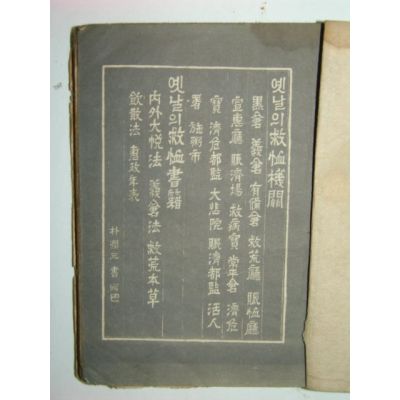 옛날의救恤機關
黑倉 義倉 有備倉 救荒廳 賑恤廳
宣惠廳 賑濟場 救病寶 常平倉 濟危
寶 濟危都監 大悲院 賑濟都監 活人
署 施粥所
옛날의救恤書籍
內外大悅法 義倉法 救荒本草
斂散法 書